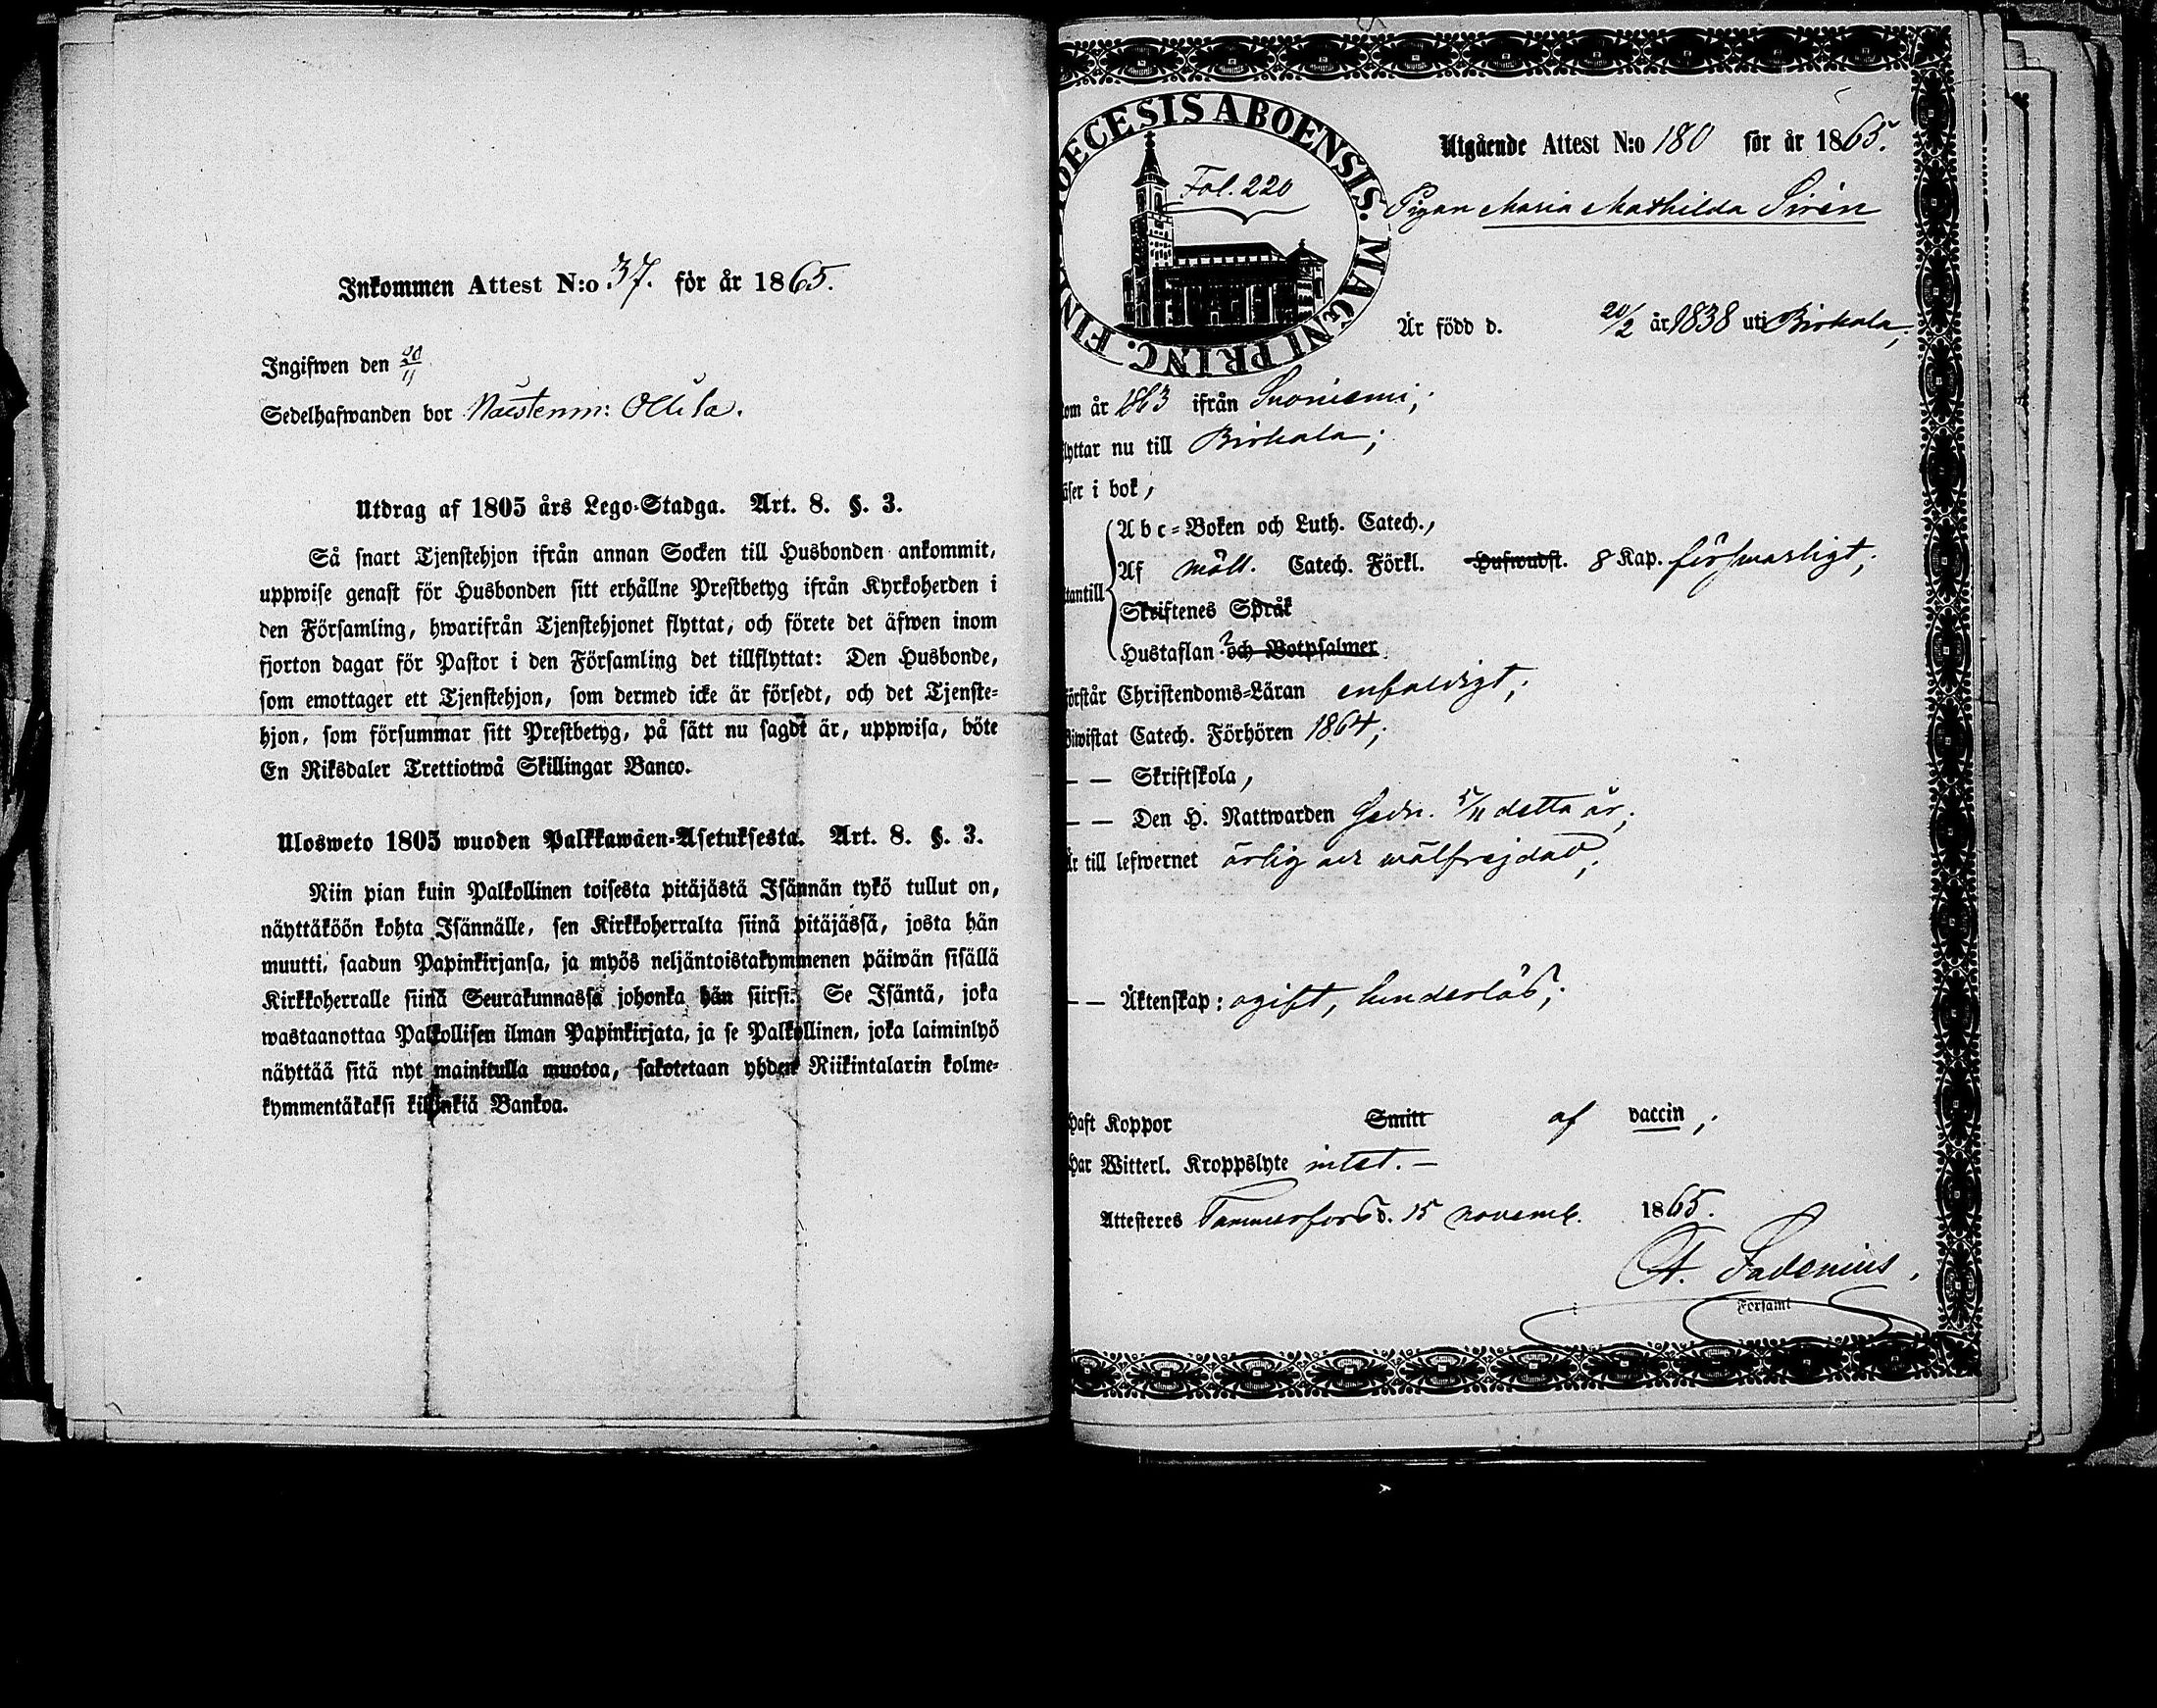 Inkommen Attest N:o 37. för år 1865.
Ingifwen den 20/11
Sedelhafwanden bor Naistenm: Ollila.
Utdrag af 1805 års Lego-Stadga. Art. 8. §. 3.
Så snart Tjenstehjon ifrån annan Socken till Husbonden ankommit,
uppwise genast för Husbonden sitt erhållne Prestbetyg ifrån Kyrkoherden i
den Församling, hwarifrån Tjenstehjonet flyttat, och förete det äfwen inom
fjorton dagar för Pastor i den Församling det tillflyttat: Den Husbonde,
som emottager ett Tjenstehjon, som dermed icke är försedt, och det Tjenste-
hjon, som försummar sitt Prestbetyg, på sätt nu sagdt är, uppwisa, böte
En Riksdaler Trettiotwå Skillingar Banco.
Ulosweto 1805 wuoden Palkkawäen-Asetuksesta. Art. 8. §. 3.
Niin pian kuin Palkollinen toisesta pitäjästä Isännän tykö tullut on,
näyttäköön kohta Isännälle, sen Kirkkoherralta siinä pitäjässä, josta hän
muutti, saadun Papinkirjansa, ja myös neljäntoistakymmenen päiwän sisällä
Kirkkoherralle siinä Seurakunnassa johonka hän siirsi: Se Isäntä, joka
wastaanottaa Palkollisen ilman Papinkirjata, ja se Palkollinen, joka laiminlyö
näyttää sitä nyt mainitulla muotoa, sakotetaan yhden Riikintalarin kolme-
kymmentäkaksi killinkiä Bankoa.
DIOECESIS ABOENSIS. MAGNI PRINC. FINL.
Fol. 220
Utgående Attest N:o 180 för år 1865.
Pigan Maria Mathilda Sirén
Är född d. 20/2 år 1838 uti Birkala,
kom år 1863 ifrån Suoniemi;
flyttar nu till Birkala;
läser i bok,
utantill
Abc-Boken och Luth. Catech.,
Af möll. Catech. Förkl. Hufwudst. 8 Kap. förswarligt;
Skriftenes Språk
Hustaflan? och Botpsalmer
förstår Christendoms-Läran enfaldigt;
Biwistat Catech. Förhören 1864;
— — Skriftskola,
— — Den H. Nattwarden sedn. 5/11 detta år;
Är till lefwernet ärlig och wälfrejdad;
— — Äktenskap: ogift, hinderlös;
Haft Koppor Smitt af vaccin,
Har Witterl. Kroppslyte intet. —
Attesteres Tammerfors d. 15 novemb. 1865.
A. Fadenius.
Församl